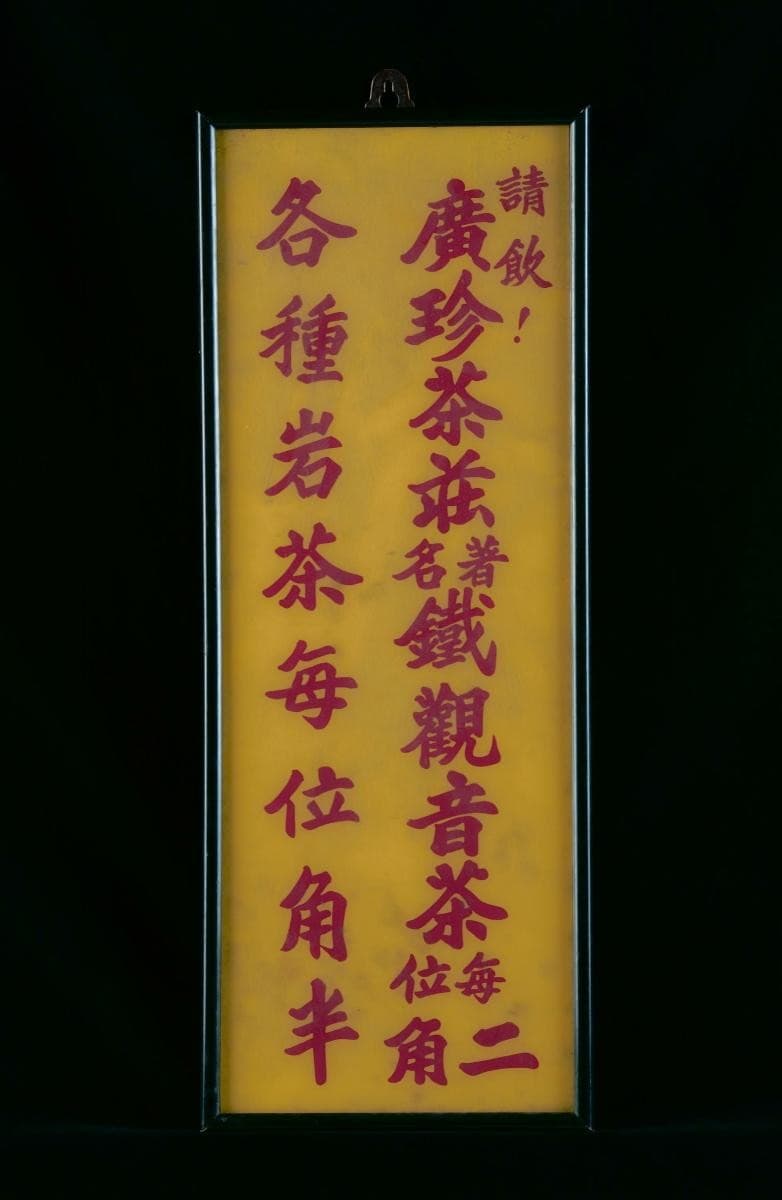 請飲！
廣珍茶莊著名鐵觀音茶每位二角
各種岩茶每位角半